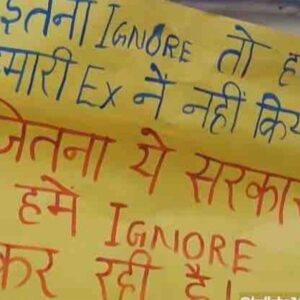 इतना IGNORE तो ह
हमारी Ex ने नहीं कि
जितना ये सरकार
हमें IGNORE
कर रही है।